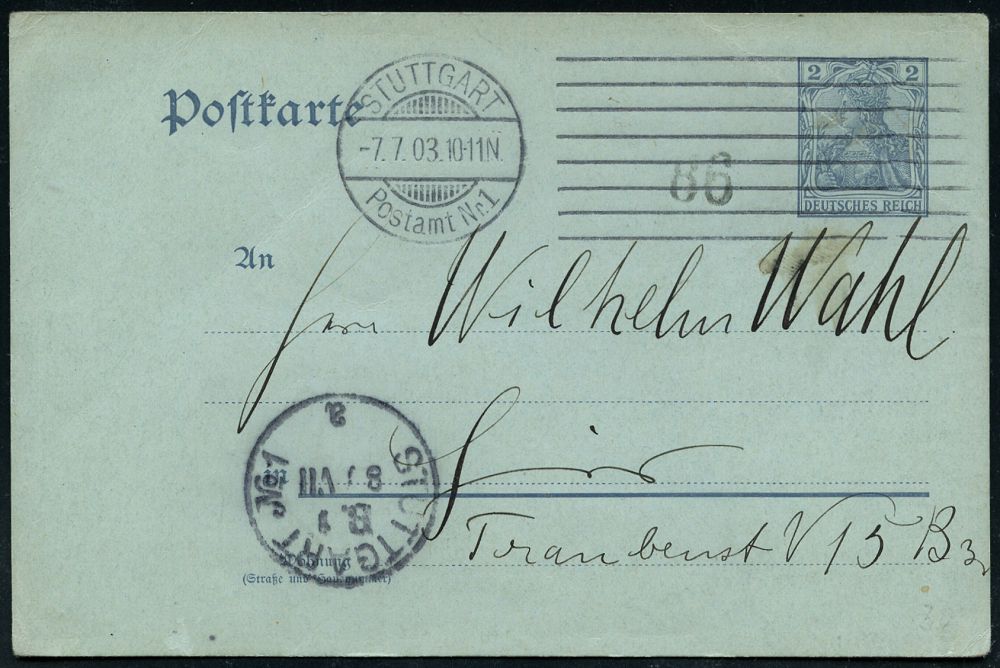 Postkarte
STUTTGART
-7.7.03.10-11N.
Postamt Nr.1
2 2
DEUTSCHES REICH
86
An
Herrn Wilhelm Wahl
in
Hier
STUTTGART No 1
a
8 VII
Traubenst V 15 B3
Wohnung
(Straße und Hausnummer)